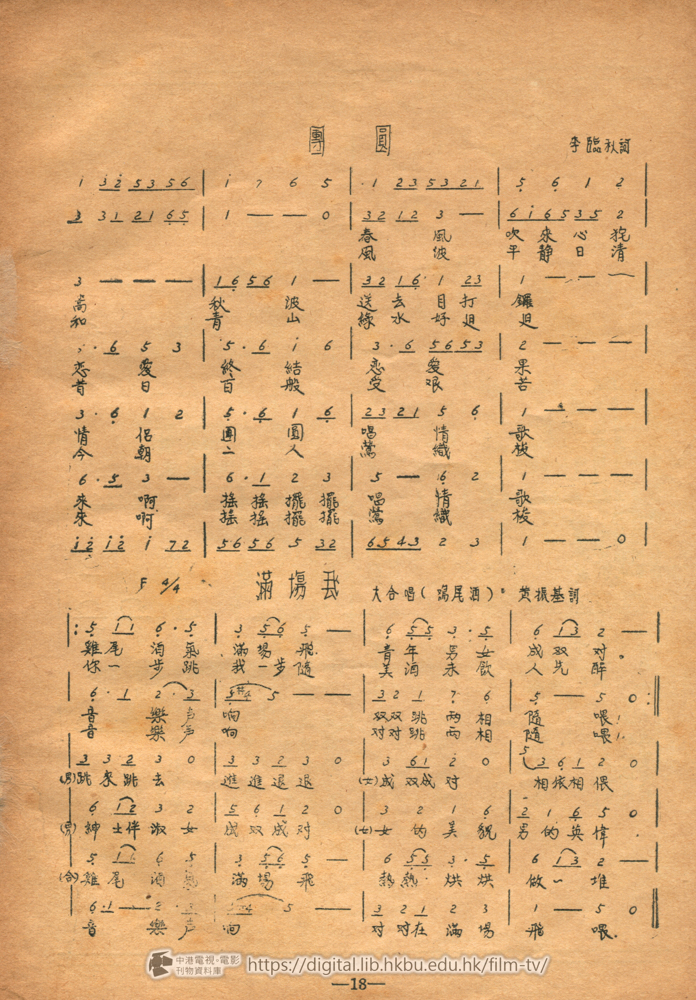 團圓
李臨秋詞
i 3 2 5 3 5 6 | i 7 6 5 | · 1 2 3 5 3 2 1 | 5 6 1 2 |
3 3 1 2 1 6 5 | 1 — — 0 | 3 2 1 2 3 — | 6 i 6 5 3 5 2 |
春 風 吹 來 心 
風 波 平 靜 日 清
3 — — — | 1 6 5 6 1 — | 3 2 1 6 1 2 3 | 1 — — — |
高 秋 波 送 去 目 打 
和 青 山 綠 水 好 迌 迌
· 6 5 3 | 5 · 6 i 6 | 3 · 6 5 6 5 3 | 2 — — — |
戀 愛 終 結 戀 愛 果
昔 日 百 般 受 艰 苦
3 · 6 1 2 | 5 · 6 1 6 | 2 3 2 1 5 6 | 1 — — — |
情 侶 團 圓 唱 情 歌
今 朝 二 人 鶯 織 梭
6 · 5 3 — | 6 · 1 2 3 | 5 — 6 2 | 1 — — — |
來 啊 搖 搖 擺 擺 唱 情 歌
來 啊 搖 搖 擺 擺 鶯 織 梭
i 2 i 2 i 7 2 | 5 6 5 6 5 3 2 | 6 5 4 3 2 3 | 1 — — 0 |
F 4/4 滿場飛 大合唱(鷄尾酒)。 黄振基詞
|: 5 1 1 6 · 5 | 3 5 6 5 — | 6 5 5 3 · 5 | 6 1 3 2 — |
雞 尾 酒 氣 滿 場 飛 青 年 男 女 成 双 对
你 一 步 跳 我 一 步 隨 美 酒 未 飲 人 先 醉。
6 · 1 2 · 3 | 5 #4 5 — | 3 2 1 7 6 | 5 — 5 0 :|
音 樂 声 响 双双 跳 两 相 隨 喂!
音 樂 声 响 对对 跳 两 相 隨 喂!
3 3 3 2 3 0 | 3 3 2 3 0 | 3 6 1 2 0 | 5 3 6 1 2 0 |
(男)跳 來 跳 去 進 進 退 退 (女)成 双成 对 相依相 偎
6 1 2 3 2 | 5 6 1 2 0 | 3 2 1 6 | 2 1 6 5 0 |
(男)紳 士伴 淑 女 成 双 成 对 (女)女 的 美 貌 男 的 英 偉。
5 1 1 6 5 | 3 5 6 5 — | 6 5 5 3 · 5 | 6 1 3 2 — |
(合)雞 尾 酒 氣 滿 場 飛 熱 熱 烘 烘 做 一 堆
6 · 1 — 2 · 3 | 5 #4 5 — | 3 2 1 2 3 | 1 — 5 0 ‖
音 樂 声 响 对 对在 滿 場 飛 喂。
中港電視·電影
刊物資料庫
https://digital.lib.hkbu.edu.hk/film-tv/
—18—